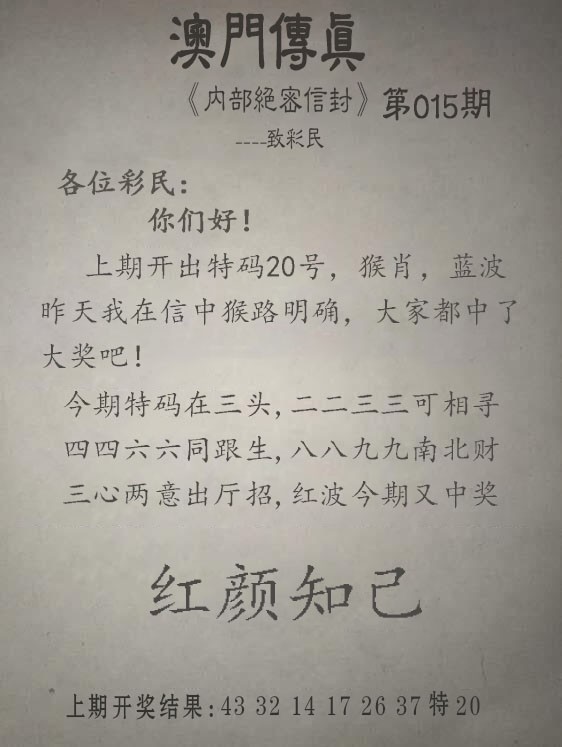 澳門傳眞
《内部絕密信封》第015期
----致彩民
各位彩民：
你们好！
上期开出特码20号，猴肖，蓝波
昨天我在信中猴路明确，大家都中了
大奖吧！
今期特码在三头,二二三三可相寻
四四六六同跟生,八八九九南北财
三心两意出厅招,红波今期又中奖
红颜知己
上期开奖结果:43 32 14 17 26 37 特 20